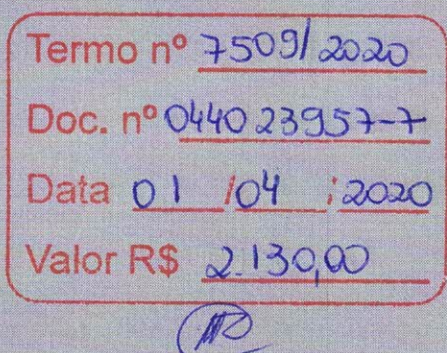 Termo nº 7509/2020
Doc. nº 044023957-7
Data 01/04/2020
Valor R$ 2.130,00